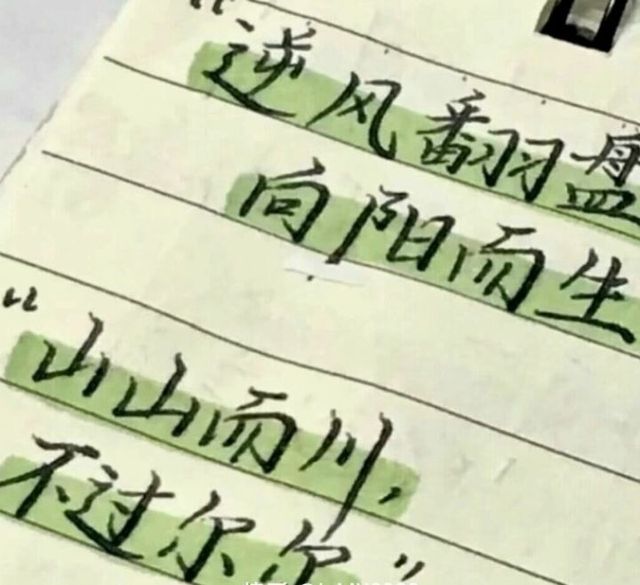 “逆风翻盘
向阳而生
“山山而川,
不过尔尔”